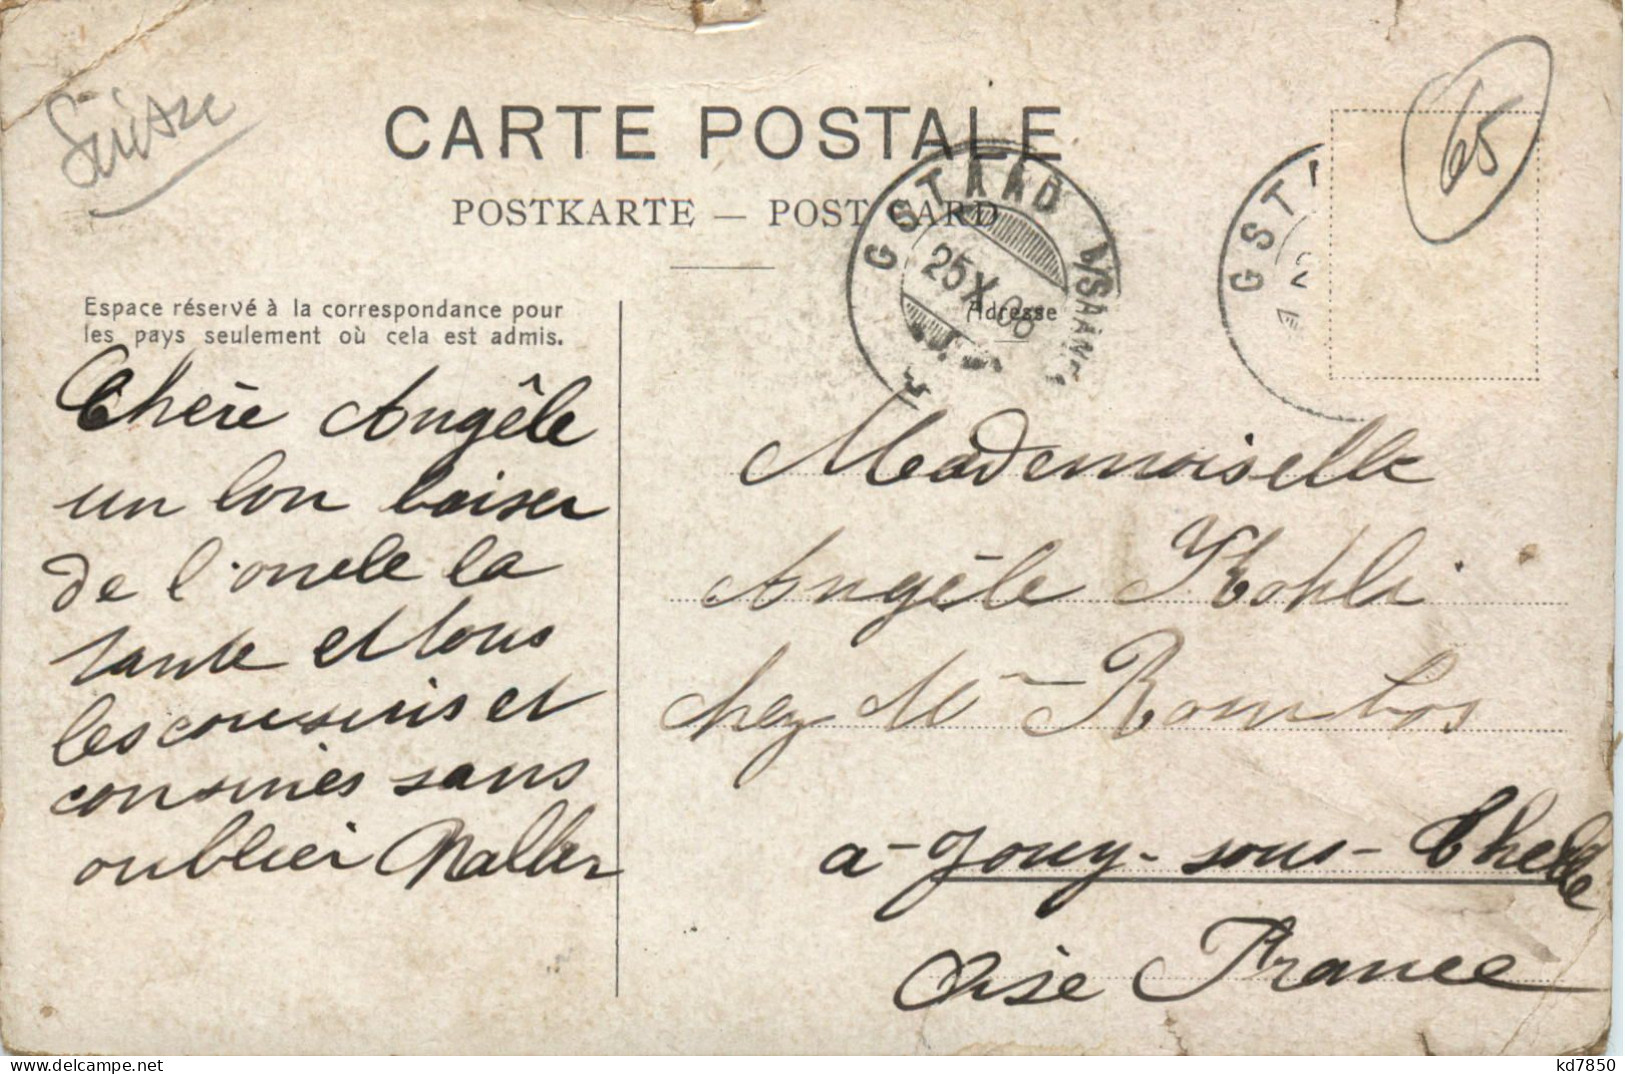 Suisse
65
CARTE POSTALE
POSTKARTE — POST CARD
GSTAAD (SAANEN)
25 X 06
GST
Espace réservé à la correspondance pour
les pays seulement où cela est admis.
Adresse
Chère Angêle
un bon baiser
de l'oncle la
tante et tous
les cousins et
cousines sans
oublier Walter
Mademoiselle
Angêle Kohli
chez Mr Rombos
a-Jouy-sous-Thelle
Oise France
kd7850